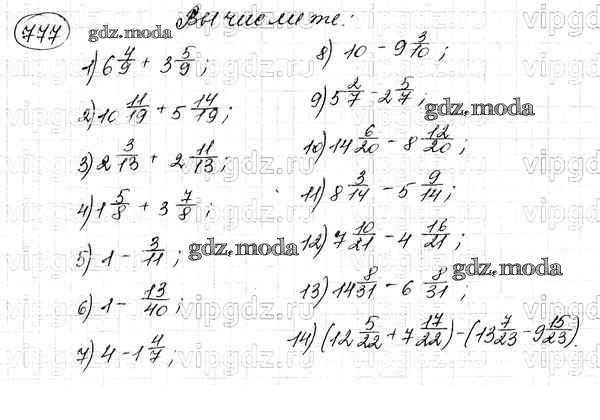 777
Вычислите:
1) 6 4/9 + 3 5/9;
2) 10 11/19 + 5 14/19;
3) 2 3/13 + 2 11/13;
4) 1 5/8 + 3 7/8;
5) 1 - 3/11;
6) 1 - 13/40;
7) 4 - 1 4/7;
8) 10 - 9 3/10;
9) 5 2/7 - 2 5/7;
10) 14 6/20 - 8 12/20;
11) 8 3/14 - 5 9/14;
12) 7 10/21 - 4 16/21;
13) 14 8/31 - 6 8/31;
14) (12 5/22 + 7 17/22) - (13 7/23 - 9 15/23).
gdz.moda
gdz.moda
gdz.moda
gdz.moda